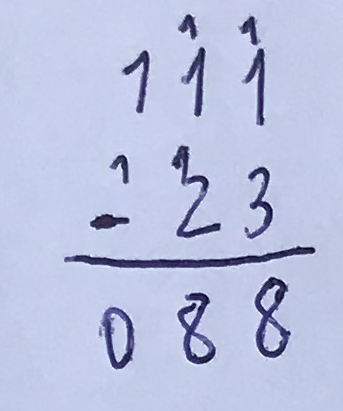 1 1
1 1 1
1 1
- 2 3
0 8 8